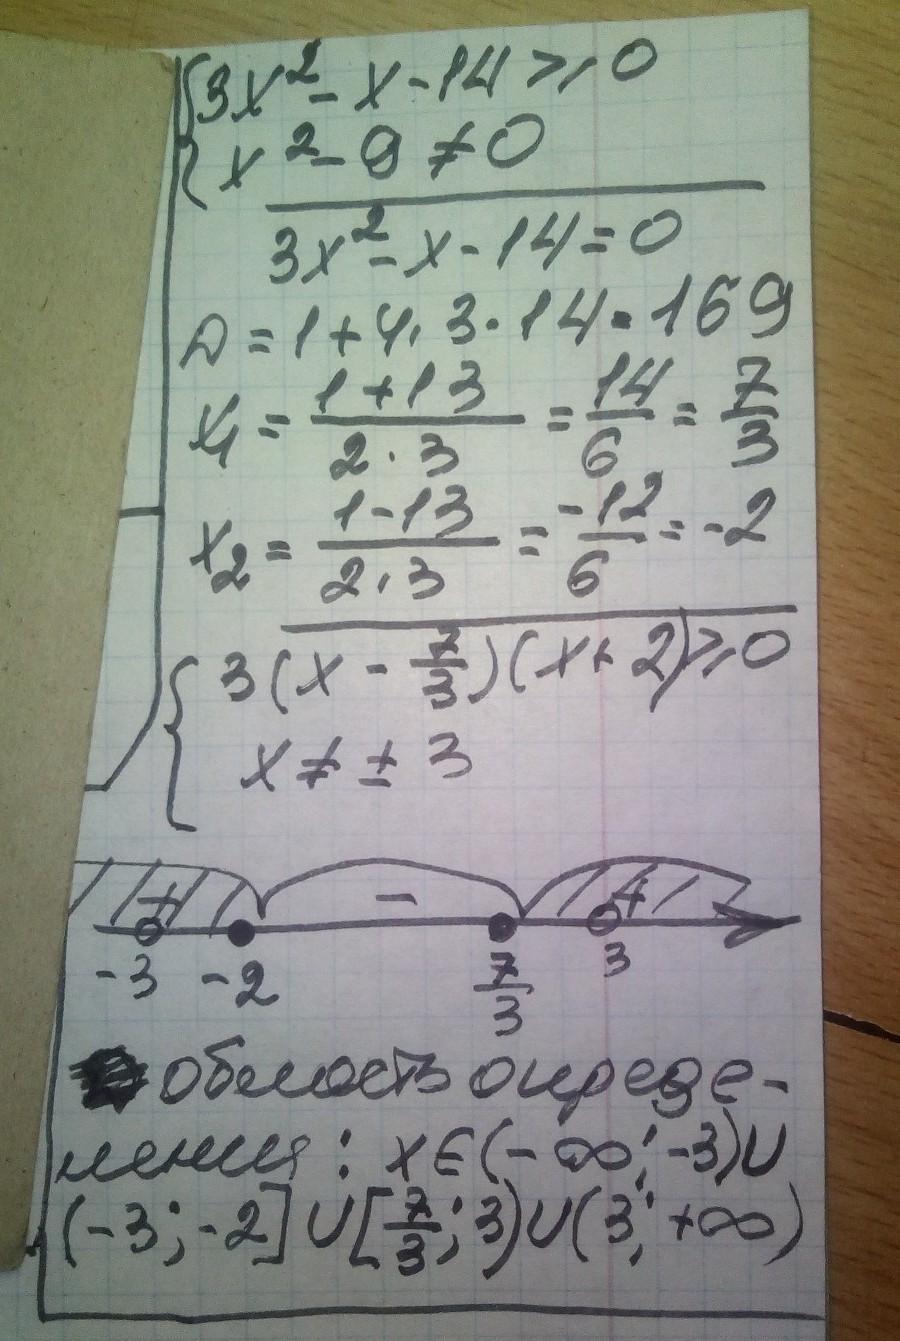 {3x² - x - 14 ⩾ 0
{x² - 9 ≠ 0
3x² - x - 14 = 0
D = 1 + 4 · 3 · 14 = 169
x₁ = (1 + 13)/(2 · 3) = 14/6 = 7/3
x₂ = (1 - 13)/(2 · 3) = -12/6 = -2
{3(x - 7/3)(x + 2) ⩾ 0
{x ≠ ± 3
+ - +
-3 -2 7/3 3
область опреде-
ления: x ∈ (-∞; -3) ∪
(-3; -2] ∪ [7/3; 3) ∪ (3; +∞)